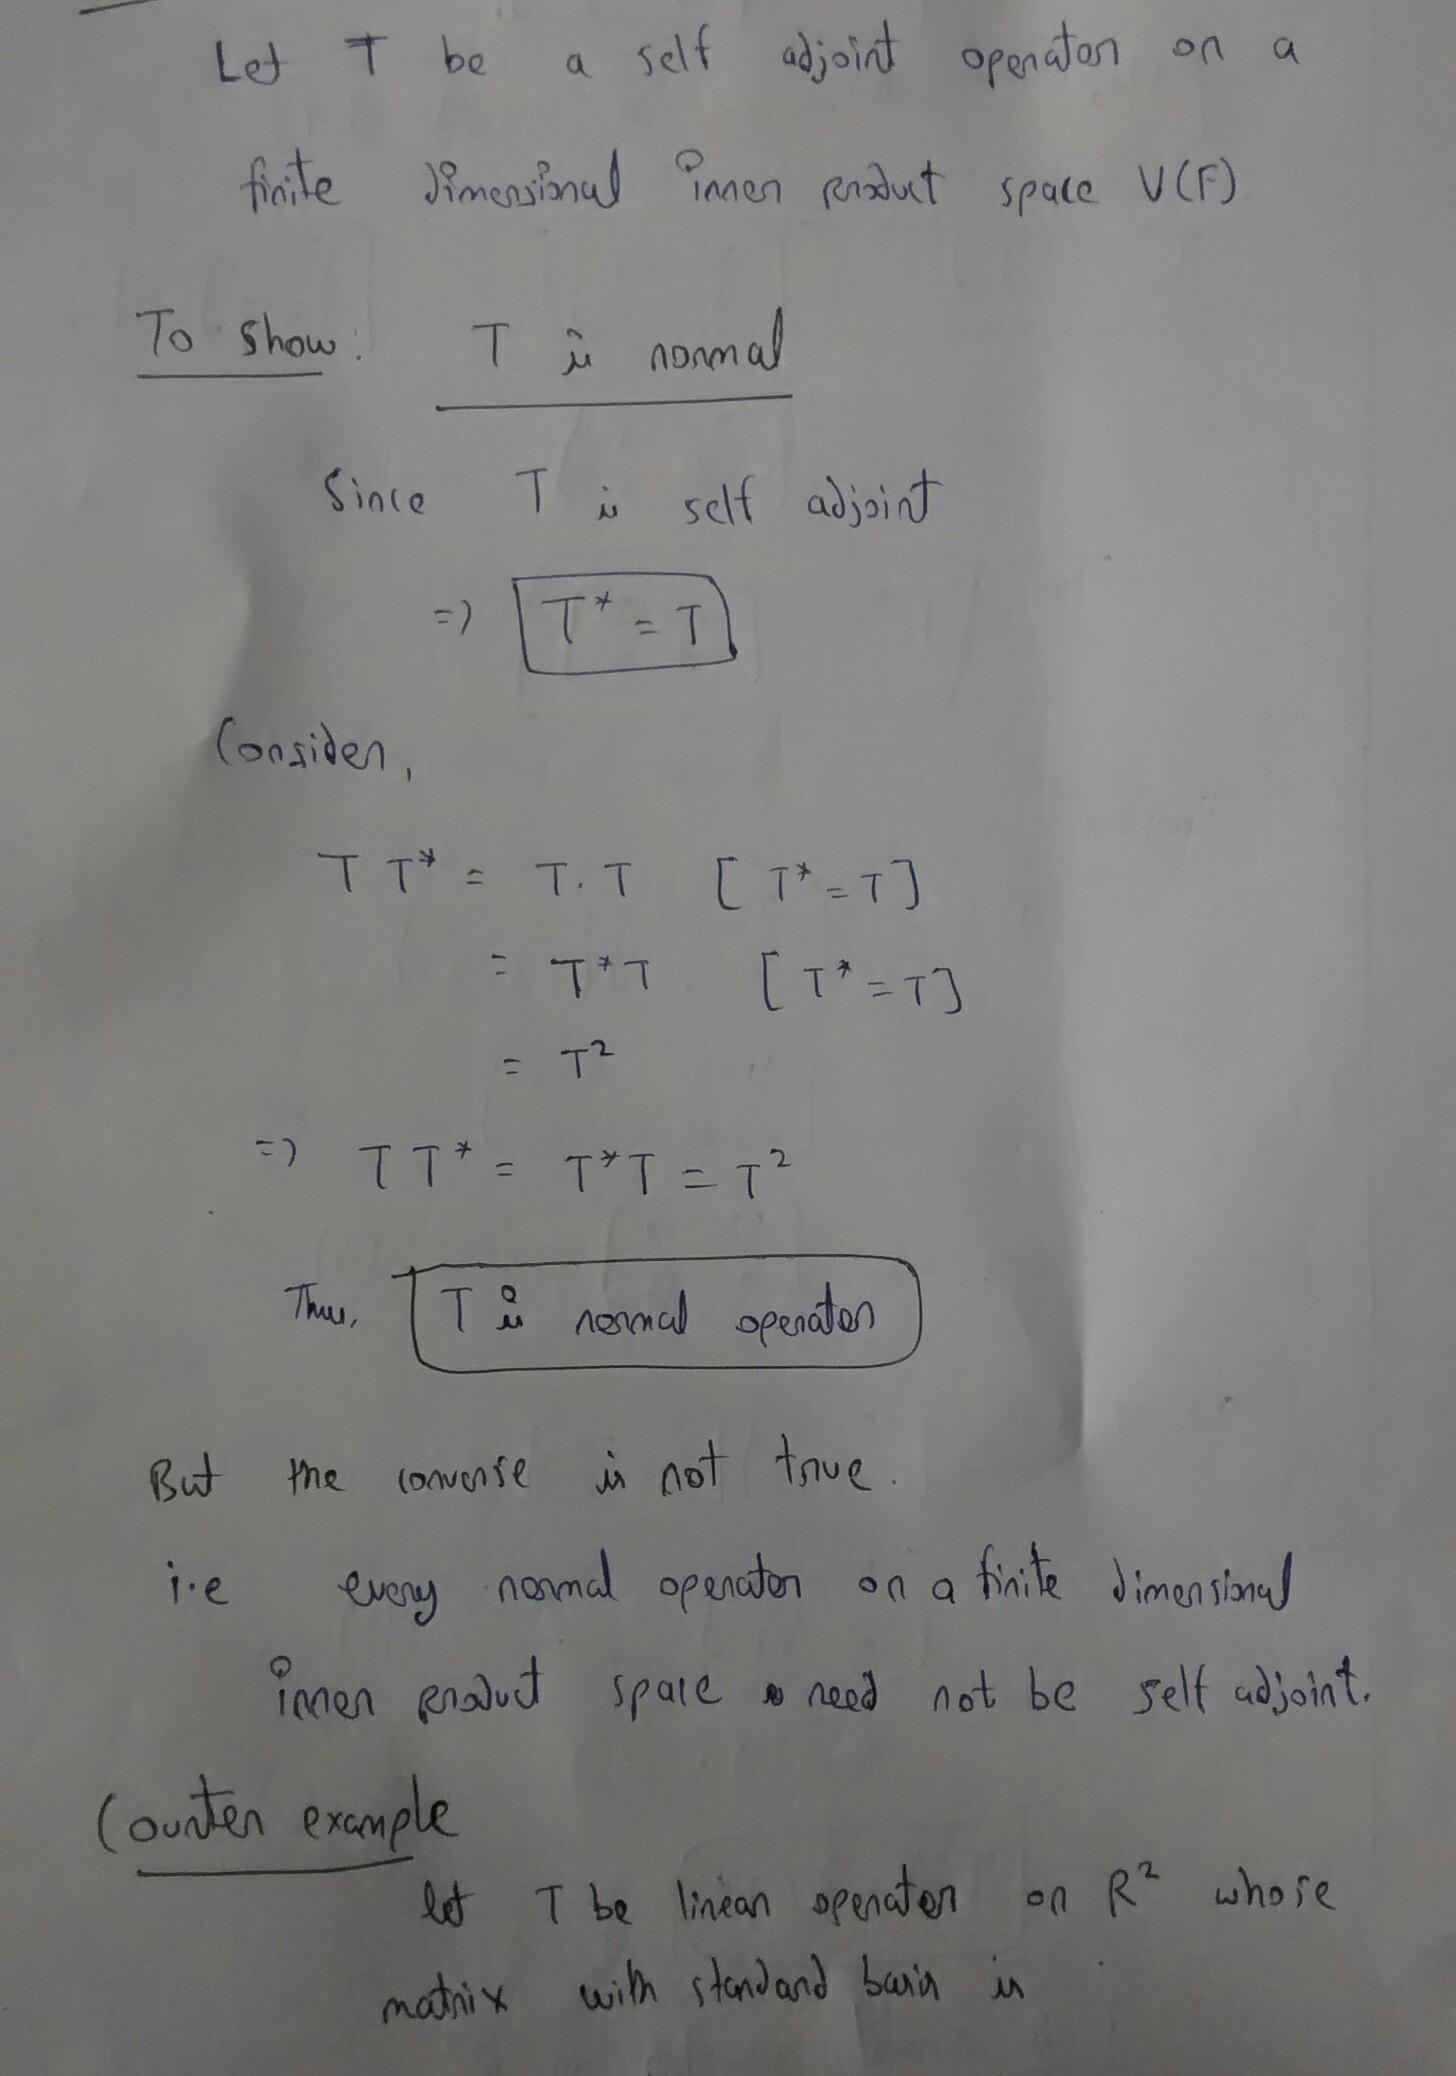 Let T be a self adjoint operator on a
finite dimensional inner product space V(F)
To show: T is normal
Since T is self adjoint
=> T* = T
Consider,
T T* = T. T [ T* = T ]
= T* T [ T* = T ]
= T²
=> T T* = T* T = T²
Thus, T is normal operator
But the converse is not true.
i.e every normal operator on a finite dimensional
inner product space need not be self adjoint.
Counter example
let T be linear operator on R² whose
matrix with standard basis is